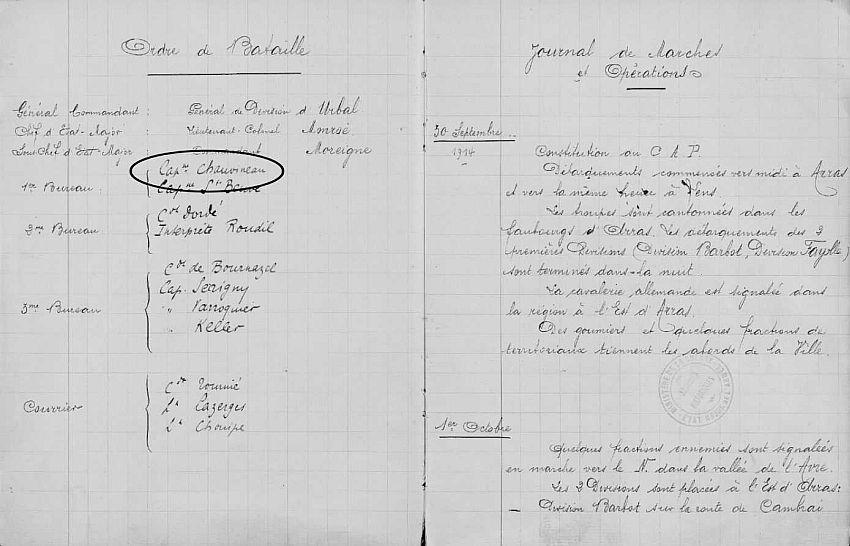 Ordre de Bataille
Général Commandant : Général de Division d'Urbal
Chef d'Etat-Major : Lieutenant-Colonel
Sous-Chef d'Etat-Major : Commandant Moreigne
1er Bureau : Capne Chauvineau
Capne Ste Beuve
2me Bureau Ct Dordé
Interprète Roudil
3me Bureau Ct de Bournazel
Cap. Serrigny
" Varroquier
" Keller
Courrier Ct
Lt Cazerges
Lt Choupe
Journal de Marches
et Opérations
30 Septembre
1914 Constitution du C A P.
Débarquements commencés vers midi à Arras
et vers la même heure à Lens.
Les troupes sont cantonnées dans les
faubourgs d'Arras. Les débarquements des 2
premières Divisions (Division Barbot, Division Fayolle)
sont terminés dans la nuit.
La cavalerie allemande est signalée dans
la région à l'Est d'Arras.
Des goumiers et quelques fractions de
territoriaux tiennent les abords de la Ville.
1er Octobre
Quelques fractions ennemies sont signalées
en marche vers le N. dans la vallée de l'Avre.
Les 2 Divisions sont placées à l'Est d'Arras:
— Division Barbot sur la route de Cambrai